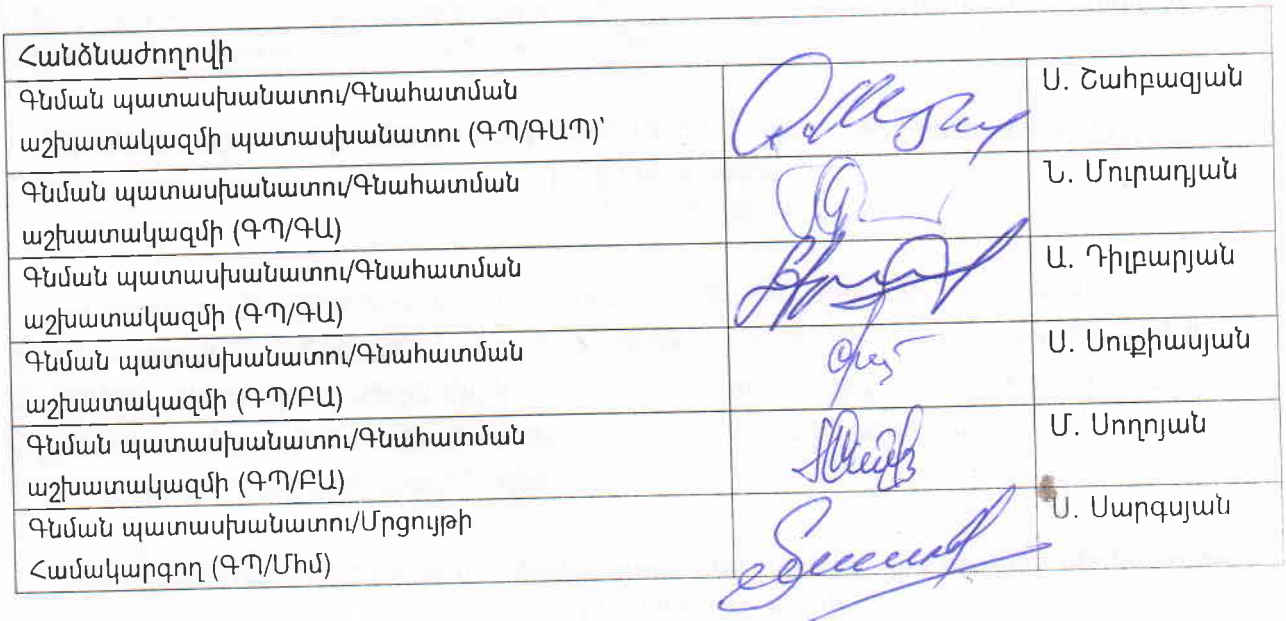 Հանձնաժողովի
Գնման պատասխանատու/Գնահատման
աշխատակազմի պատասխանատու (ԳՊ/ԳԱՊ)՝
Ս. Շահբազյան
Գնման պատասխանատու/Գնահատման
աշխատակազմի (ԳՊ/ԳԱ)
Ն. Մուրադյան
Գնման պատասխանատու/Գնահատման
աշխատակազմի (ԳՊ/ԳԱ)
Ա. Դիլբարյան
Գնման պատասխանատու/Գնահատման
աշխատակազմի (ԳՊ/ԲԱ)
Ս. Սուքիասյան
Գնման պատասխանատու/Գնահատման
աշխատակազմի (ԳՊ/ԲԱ)
Մ. Սողոյան
Գնման պատասխանատու/Մրցույթի
Համակարգող (ԳՊ/Մհմ)
Ս. Սարգսյան